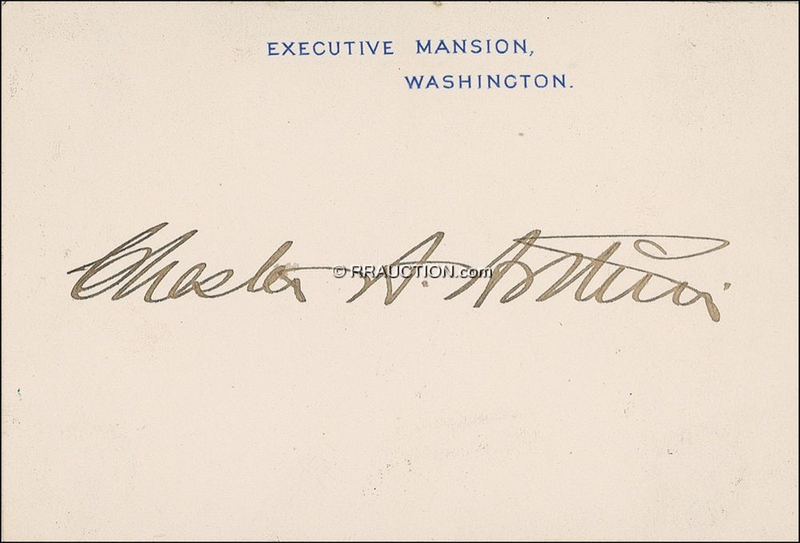 EXECUTIVE MANSION,
WASHINGTON.
Chester A. Arthur
© RRAUCTION.com